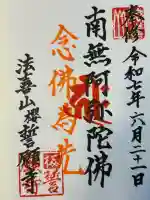 奉拝
令和七年六月二十一日
南無阿弥陀佛
念佛為先
法喜山櫻誓願寺